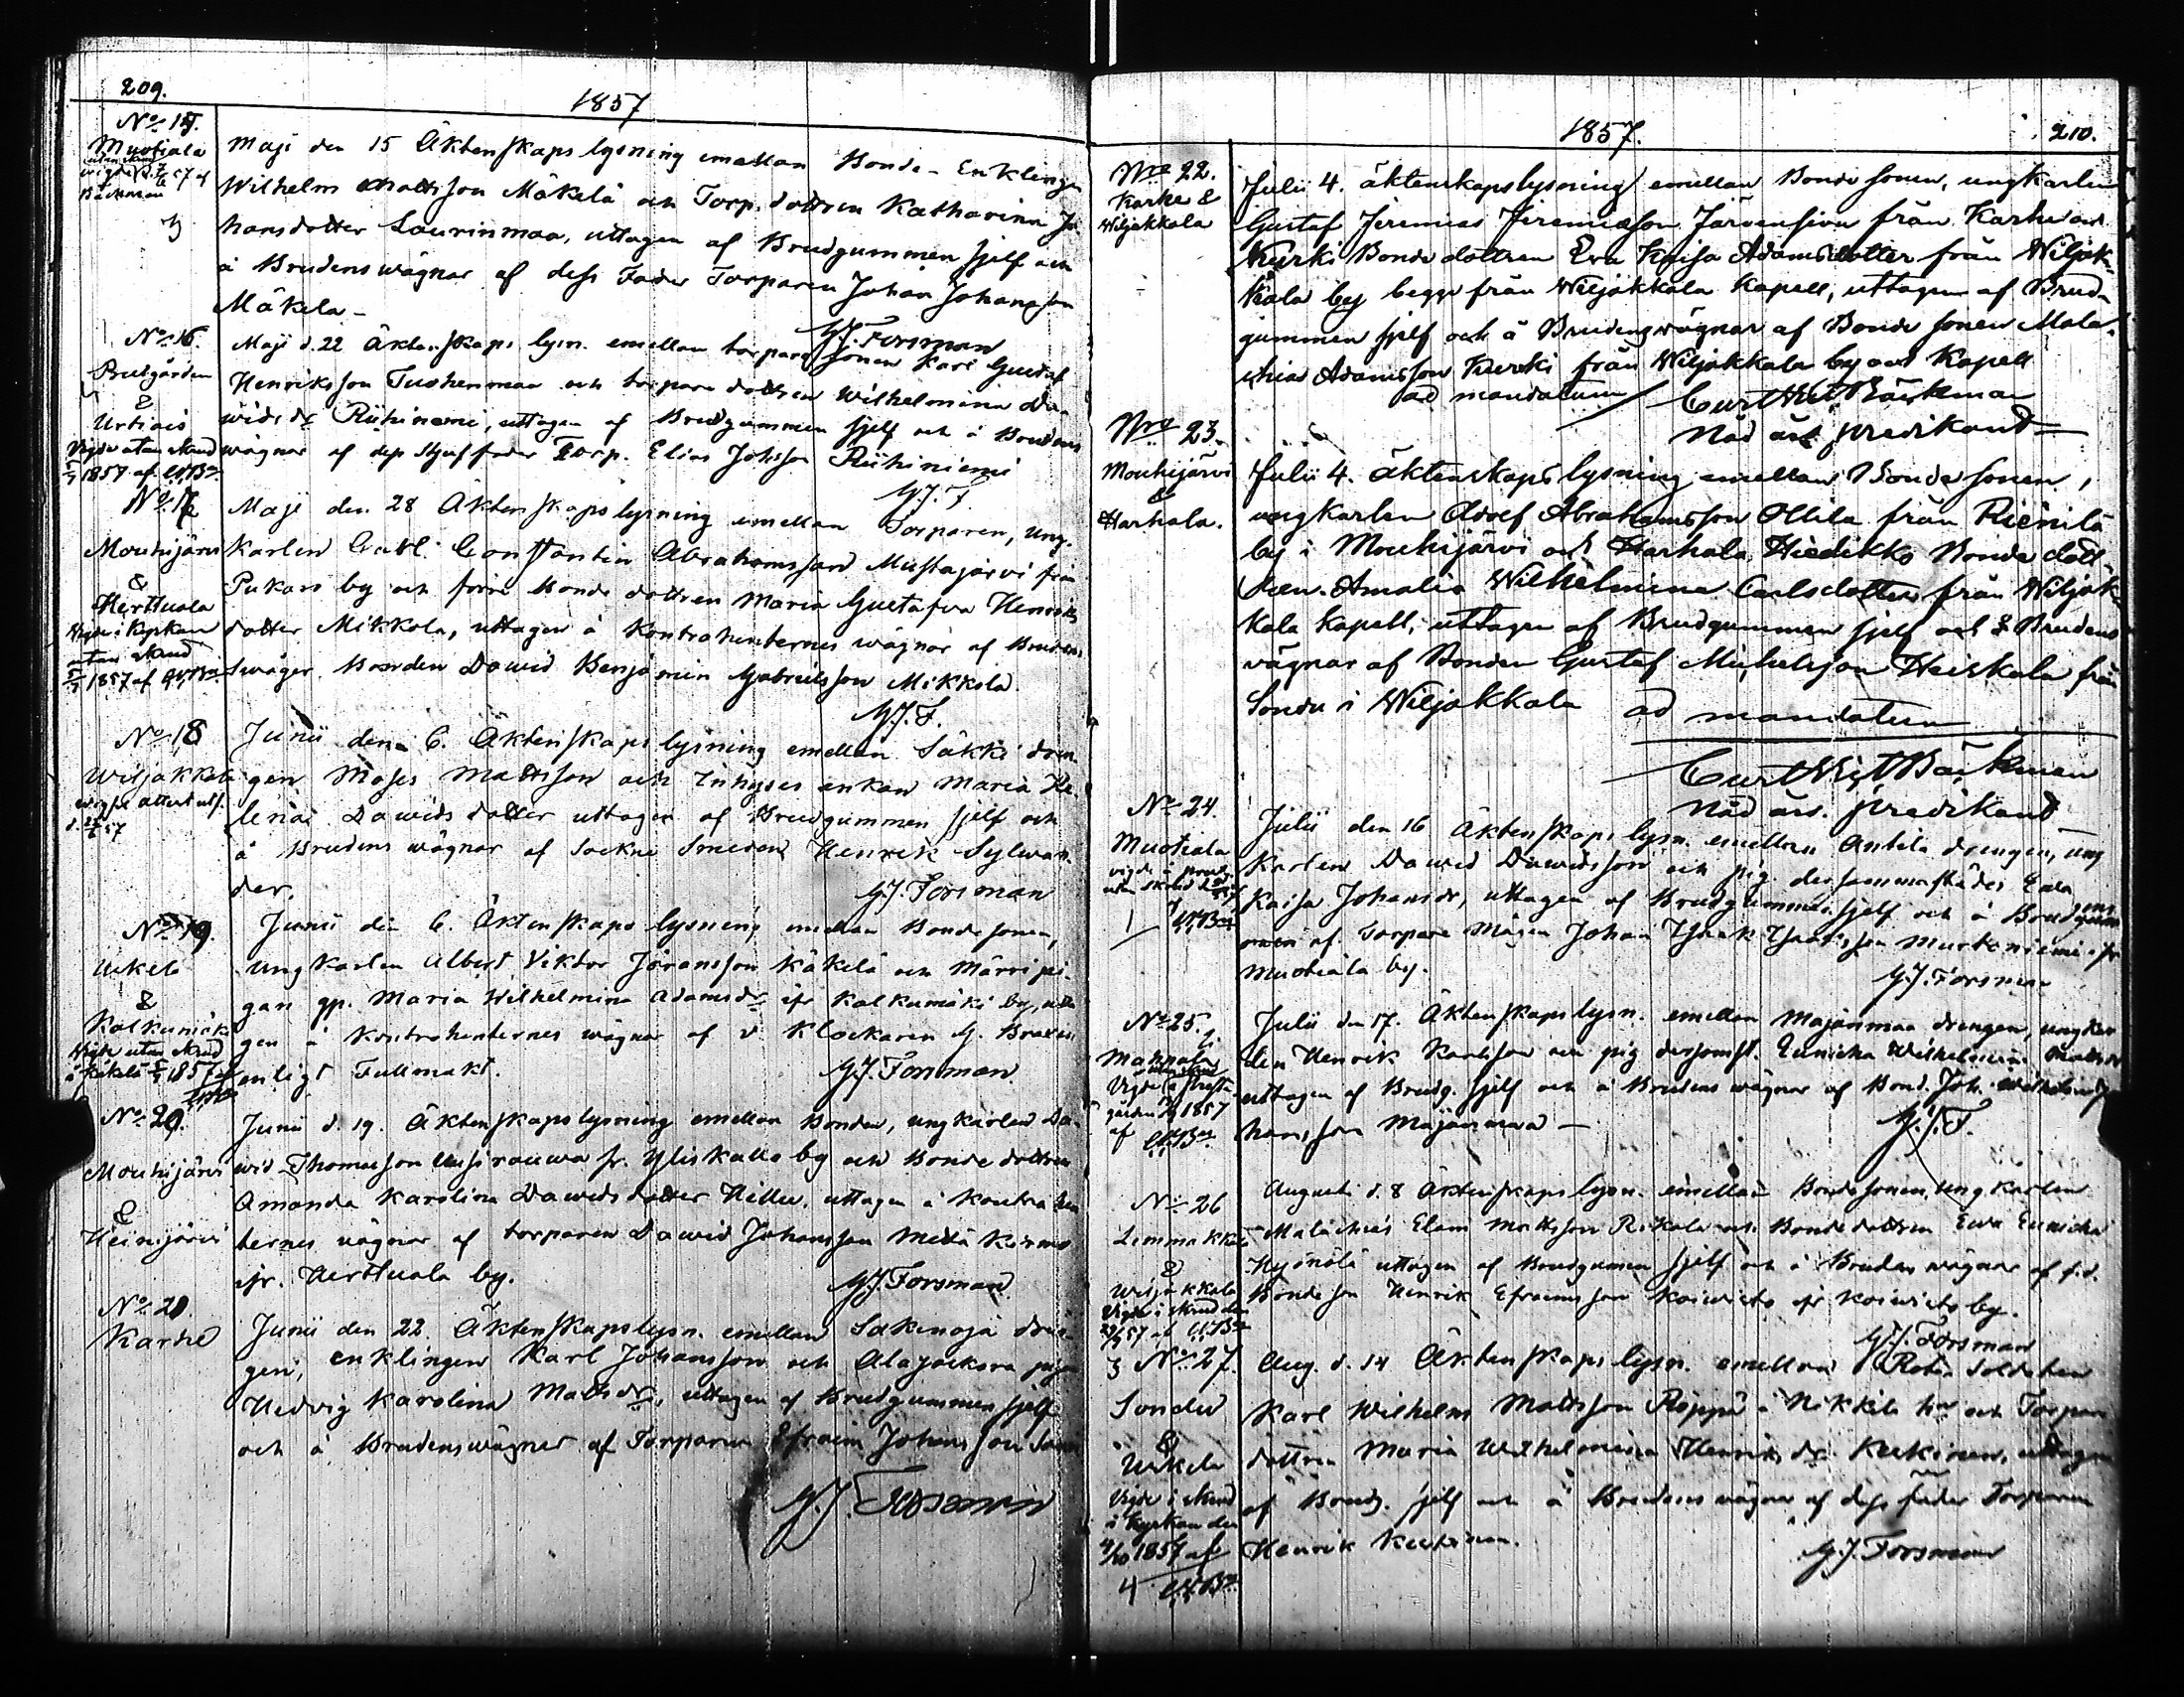 209.
1857
No 15.
Muotiala
Maji den 15 Äktenskaps lysning emellan Bonde-Enklingen
Wilhelm Mattsson Mäkelä och Torp. dottren Katharina Jo
hansdotter Laurinmaa, uttagen af Brudgummen sjelf och
å Brudens wägnar af dess Fader Torparen Johan Johansson
Mäkelä
G.J. Forsman
No 16.
Prestgården
&
Urtiais
Vigde utan skrud
1857 af
Maji d. 22 Äktenskaps lysn. emellan torpare sonen Karl Gustaf
Henriksson Tuohenmaa och torpare dottren Wilhelmina Da
widsdr Riihiniemi, uttagen af Brudgummen sjelf och å Brudens
wägnar af dess Styffader Torp. Elias Johsson Riihiniemi
G.J.F.
No 17
Mouhijärvi
&
Herttuala
Vigde i Kyrkan
utan skrud
1857 af
Maji den 28 Äktenskaps lysning emellan Torparen, ung-
karlen Carl Constantin Abrahamsson Mustajärvi från
Pukara by och förre Bonde dottren Maria Gustafva Henriks
dotter Mikkola, uttagen å Kontrahenternes wägnar af Brudens
Swåger Bonden Dawid Benjamin Gabrielsson Mikkola.
G.J.F.
No 18
Wiljakkala
Junii den 6. Äktenskaps lysning emellan Säkki dren
gen Moses Mattsson och Inhyses enkan Maria He
lena Dawids dotter uttagen af Brudgummen sjelf och
å Brudens wägnar af Sockne Smeden Henrik Sylwan
der.
G.J. Forsman
No 19.
Uskela
&
Kalkunmäki
Vigde utan skrud
Junii den 6. Äktenskaps lysning emellan Bonde sonen,
Ungkarlen Albert Viktor Göransson Käkelä och Märri pi
gan gp. Maria Wilhelmina Adamsdr ifr Kalkunmäki by, utta
gen å Kontrahenternes wägnar af v. Klockaren G. Braxen
enligt Fullmakt.
G.J. Forsman
No 20.
Mouhijärvi
&
Heinijärvi
Junii d. 19. Äktenskaps lysning emellan Bonden, ungkarlen Da
wid Thomasson Uusirauwa fr. Yliskallo by och Bonde dottren
Amanda Karolina Dawids dotter Hillu, uttagen å Kontrahen
ternes wägnar af torparen Dawid Johansson
ifr. Herttuala by.
G.J. Forsman
No 21
Karhe
Junii den 22 Äktenskapslysn. emellan Sakinoja dren
gen, enklingen Karl Johansson och Alajockora pigan
Hedvig Karolina Mattsdr, uttagen af Brudgummen sjelf
och å Brudens wägnar af Torparen Efraim Johansson
G.J. Forsman
1857.
210.
Nro 22.
Karhe &
Wiljakkala
Julii 4. äktenskapslysning emellan Bonde sonen, ungkarlen
Gustaf Jeremias Jeremiasson Järvensivu från Karhe och
Kurki Bonde dottren Eva Kaisa Adamsdotter från Wiljak-
kala by begge från Wiljakkala Kapell, uttagen af Brud-
gummen sjelf och å Brudens wägnar af Bonde sonen Mala-
chias Adamsson Kurki från Wiljakkala by och Kapell
ad mandatum
Curt Wilh Bäckman
Nåd års predikant
Nro 23.
Mouhijärvi
&
Harhala.
Julii 4. äktenskaps lysning emellan Bonde sonen,
ungkarlen Adolf Abrahamsson Ollila från Rienilä
by i Mouhijärvi och Harhala Hiedikko Bonde dott-
ren Amalia Wilhelmina Carlsdotter från Wiljak-
kala Kapell, uttagen af Brudgummen sjelf och å Brudens
vägnar af Bonden Gustaf Michelsson Heiskala från
Sondu i Wiljakkala ad mandatum
Curt Bäckman
Nåd års. predikant
No 24.
Muotiala
Julii den 16 Äktenskaps lysn. emellan Antila drengen, ung
karlen Dawid Dawidsson och pig. dersammastädes
Kaisa Johansdr, uttagen af Brudgummen sjelf och å
af Torpare Mågen Johan Isaak Isaksson Murtoniemi fr
Muotiala by.
G.J. Forsman
No 25.
Mahnala
1857
af
Julii den 17. Äktenskaps lysn. emellan Majanmaa drengen, ungkar
len Henrik Karlsson och pig. dersamst. Eunicka Wilhelmina Mattsdr
uttagen af Brudg. sjelf och å Brudens wägnar af Bond. Joh. Wilhelm Jo
hansson Majanmaa
G.J.F.
No 26
Lemmakkala
&
Wiljakkala
Augusti d. 8 Äktenskaps lysn. emellan Bondesonen, Ungkarlen
Malachias Elam Mattsson Rikala och Bonde dottren Ewa Eunicka
Hyönölä uttagen af Brudgumen sjelf och å Brudens wägnar af f.d.
Bonde son Henrik Efraimsson Koiwisto ifr Koiwisto by.
G.J. Forsman
No 27.
Sondu
&
Uskela
Vigde i skrud
i kyrkan den
4/10 1857 af
Aug. d. 14 Äktenskaps lysn. emellan Rote Soldaten
Karl Wilhelm Mattsson Reippa i Nikkilä hn och Torpare
dottren Maria Wilhelmina Henriksdr Keskinen, uttagen
af Brudg. sjelf och å Brudens wägnar af dess fader Torparen
Henrik Keskinen.
G.J. Forsman